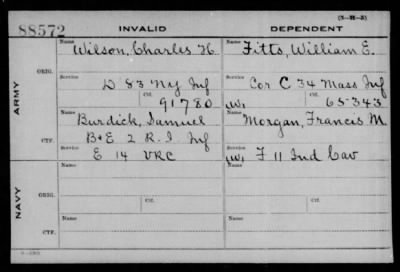 (3-91-3)
88572 INVALID DEPENDENT
Name Name
Wilson, Charles H Fitts, William E.
ORIG.
Service Service
D 83 NY Inf Cor C 34 Mass Inf
Ctf. Ctf.
91780 (W) 65-343
ARMY
Name Name
Burdick, Samuel Morgan, Francis M.
CTF.
Service Service
B+E 2 R.I. Inf
E 14 VRC (W) F 11 Ind Cav
NAVY
Name Name
ORIG.
Service Service
Ctf. Ctf.
Name Name
CTF.
Service Service